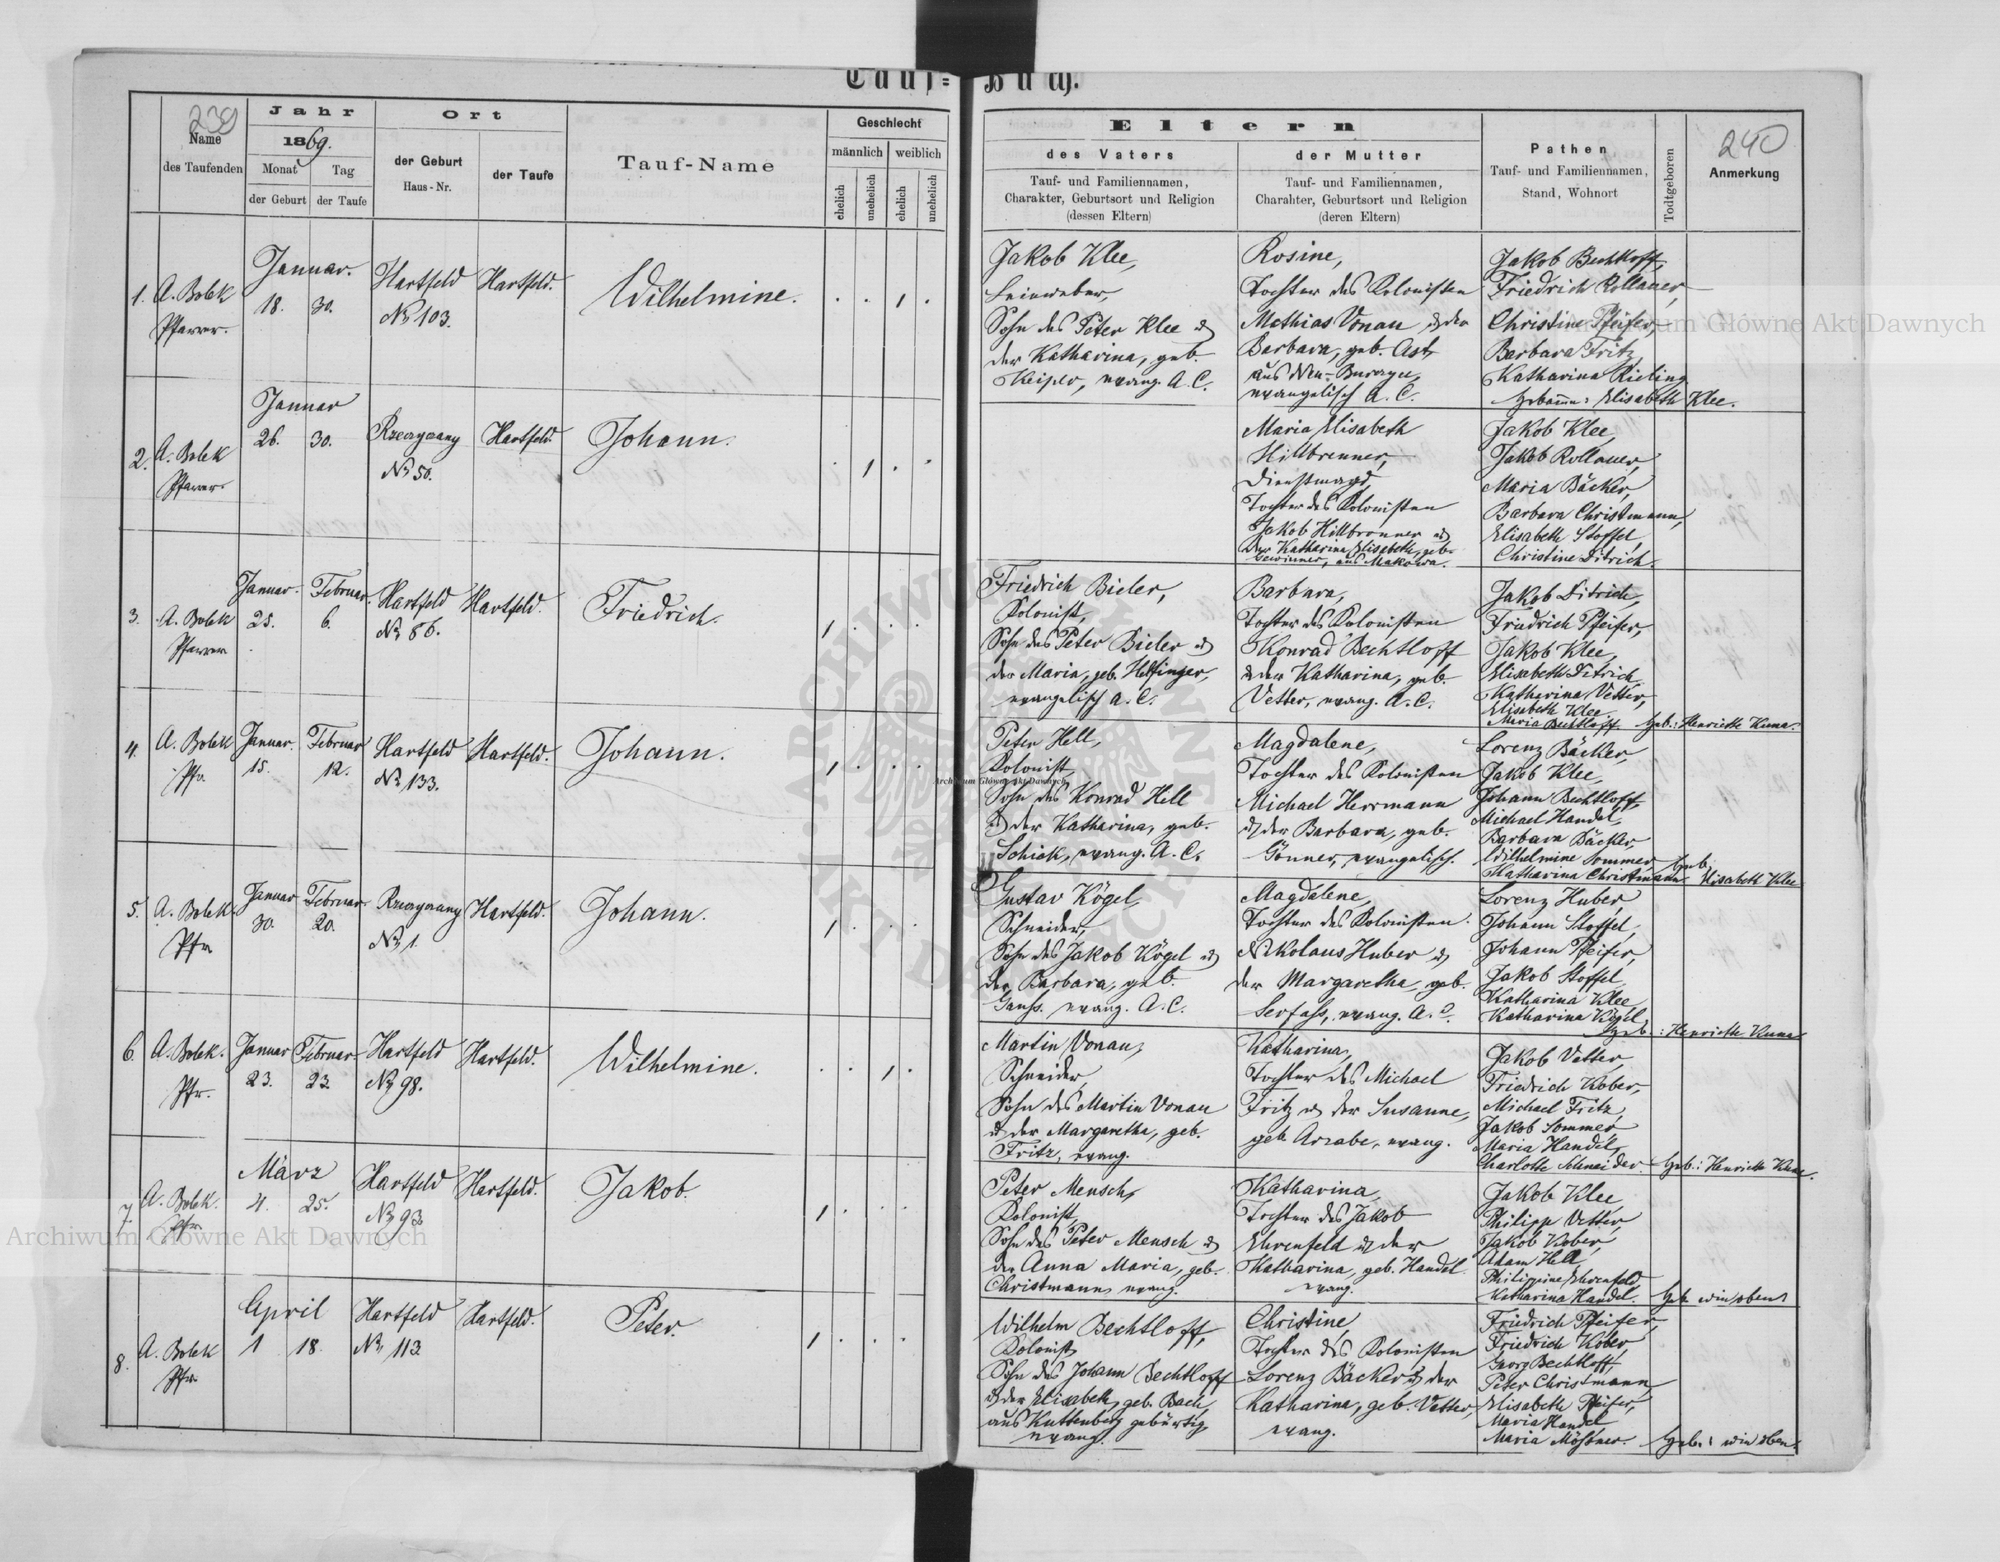 Tauf-Buch.
239
Name
des Taufenden
Jahr
1869.
Monat
Tag
der Geburt
der Taufe
Ort
der Geburt
Haus-Nr.
der Taufe
Tauf-Name
Geschlecht
männlich
weiblich
ehelich
unehelich
ehelich
unehelich
Eltern
des Vaters
Tauf- und Familiennamen,
Charakter, Geburtsort und Religion
(dessen Eltern)
der Mutter
Tauf- und Familiennamen,
Charahter, Geburtsort und Religion
(deren Eltern)
Pathen
Tauf- und Familiennamen,
Stand, Wohnort
Todtgeboren
240
Anmerkung
1.
A. Bolek
Pfarrer.
Januar.
18.
30.
Hartfeld
No 103.
Hartfeld.
Wilhelmine.
Jakob Klee,
Leinweber,
Sohn des Peter Klee u
der Katharina, geb.
Keiper, evang. A. C.
Rosine,
Tochter des Kolonisten
Mathias Vonau u der
Barbara, geb. Ast,
aus Neu-
evangelisch A. C.
Jakob Bechtloff,
Friedrich Rollauer,
Christine Pfeifer,
Barbara Fritz,
Katharina Rieling
Hebamme: Elisabeth Klee.
2.
A. Bolek
Pfarrer.
Januar
26.
30.
No 50.
Hartfeld.
Johann.
Maria Elisabeth
Hillbrenner,
Dienstmagd,
Tochter des Kolonisten
Jakob Hillbrenner u
der Katharina Elisabeth, geb.
aus Makowa.
Jakob Klee,
Jakob Rollauer,
Maria Bäcker,
Barbara Christmann,
Elisabeth Stoffel,
Christine Ditrich.
3.
A. Bolek
Pfarrer
Januar.
25.
Februar.
6.
Hartfeld
No 86.
Hartfeld.
Friedrich.
Friedrich Bieler,
Kolonist,
Sohn des Peter Bieler u
der Maria, geb. Helfinger,
evangelisch A. C.
Barbara,
Tochter des Kolonisten
Konrad Bechtloff
u der Katharina, geb.
Vetter, evang. A. C.
Jakob Ditrich,
Friedrich Pfeifer,
Jakob Klee,
Elisabeth Ditrich
Katharina Vetter,
Elisabeth Klee
Maria Bechtloff. Heb.: Henriette Kuna.
4.
A. Bolek
Pfr.
Januar.
15.
Februar
12.
Hartfeld
No 133.
Hartfeld.
Johann.
Peter Hell,
Kolonist,
Sohn des Konrad Hell
u der Katharina, geb.
Schick, evang. A. C.
Magdalene,
Tochter des Kolonisten
Michael Herrmann
u der Barbara, geb.
Gönner, evangelisch.
Lorenz Bäcker,
Jakob Klee,
Johann Bechtloff,
Michael Handel,
Barbara Bäcker
Wilhelmine Sommer Heb.
Katharina Christmann Elisabeth Klee
5.
A. Bolek.
Pfr
Januar
30.
Februar
20.
No 1.
Hartfeld.
Johann.
Gustav Kögel,
Schneider,
Sohn des Jakob Kögel u
der Barbara, geb.
Ganss. evang. A. C.
Magdalene,
Tochter des Kolonisten
Nikolaus Huber u
der Margaretha, geb.
Serfass, evang. A. C.
Lorenz Huber,
Johann Stoffel,
Johann Pfeifer,
Jakob Stoffel
Katharina Klee
Katharina Kögel
Heb.: Henriette Kuna
6.
A. Bolek.
Pfr.
Januar
23.
Februar
23.
Hartfeld
No 98.
Hartfeld.
Wilhelmine.
Martin Vonau,
Schneider,
Sohn des Martin Vonau
u der Margaretha, geb.
Fritz, evang.
Katharina,
Tochter des Michael
Fritz u der Susanne,
geb. Arrabe, evang.
Jakob Vetter,
Friedrich Kober,
Michael Fritz,
Jakob Sommer
Maria Handel,
Charlotte Schneider. Heb.: Henriette Kuna.
7.
A. Bolek.
Pfr.
März
4.
25.
Hartfeld
No 93
Hartfeld.
Jakob.
Peter Mensch,
Kolonist,
Sohn des Peter Mensch u
der Anna Maria, geb.
Christmann, evang.
Katharina,
Tochter des Jakob
Ehrenfeld u der
Katharina, geb. Handel
evang.
Jakob Klee
Philipp Vetter,
Jakob Kober,
Adam Hell,
Philippine Ehrenfeld
Katharina Handel. Heb. wie oben
8.
A. Bolek
Pfr
April
1
18.
Hartfeld
No 113
Hartfeld.
Peter.
Wilhelm Bechtloff,
Kolonist,
Sohn des Johann Bechtloff
u der Elisabeth, geb. Bach,
aus Kuttenberg gebürtig
evang.
Christine,
Tochter des Kolonisten
Lorenz Bäcker u der
Katharina, geb. Vetter,
evang.
Friedrich Pfeifer,
Friedrich Kober,
Georg Bechtloff,
Peter Christmann,
Elisabeth Pfeifer,
Maria Handel
Maria Mössner. Heb.: wie oben.
Archiwum Główne Akt Dawnych
Archiwum Główne Akt Dawnych
Archiwum Główne Akt Dawnych